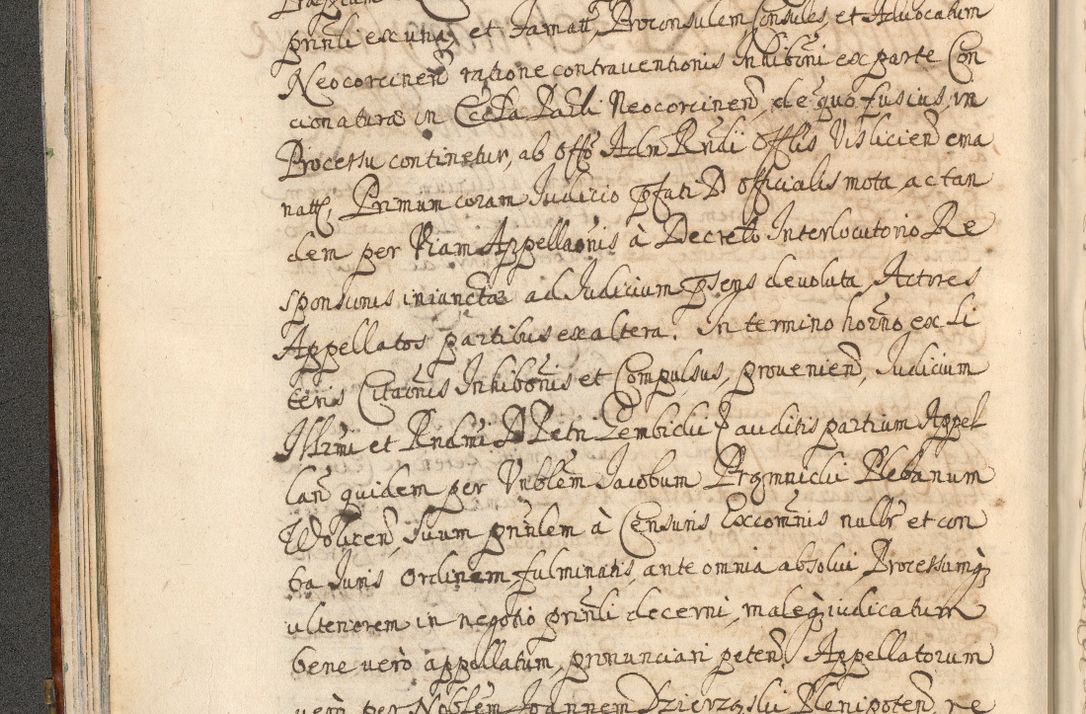 prñli ex una, et Famatt, Proconsulem Consules, et Advocatum
Neocorcineñ ratione contraventionis Inhiboñi ex parte Con
cionatura in Eccla Parli Neocorcineñ, de quo fusius, in
Processu continetur, ab offo Adm Rndi Offlis Visliciеñ ema
natt, Primum coram Iudicio pfati D officialis mota, ac tan
dem per Viam Appellaonis à Decreto Interlocutorio Re
sponsionis iniuncta ad Iudicium psens devoluta, Actores
Appellatos partibus ex altera. In termino horno, ex Li
teris Citaonis Inhibonis et Compulsus, provenieñ, Iudicium
Illrmi et Rndmi D Petri Gembicki & auditis partium Appel
lañ quidem per Vnblem Iacobum Plebanum
suum prñlem à Censuris Excomnis nullr et con
tra Iuris Ordinem fulminatis, ante omnia absolvi, Processumq
ulteriorem in negotio prñli decerni, maleq iudicatum
bene verò appellatum, pronunciari peteñ. Appellatorum
verò per Noblem Joannem Dzierzgski Plenipoteñ, re